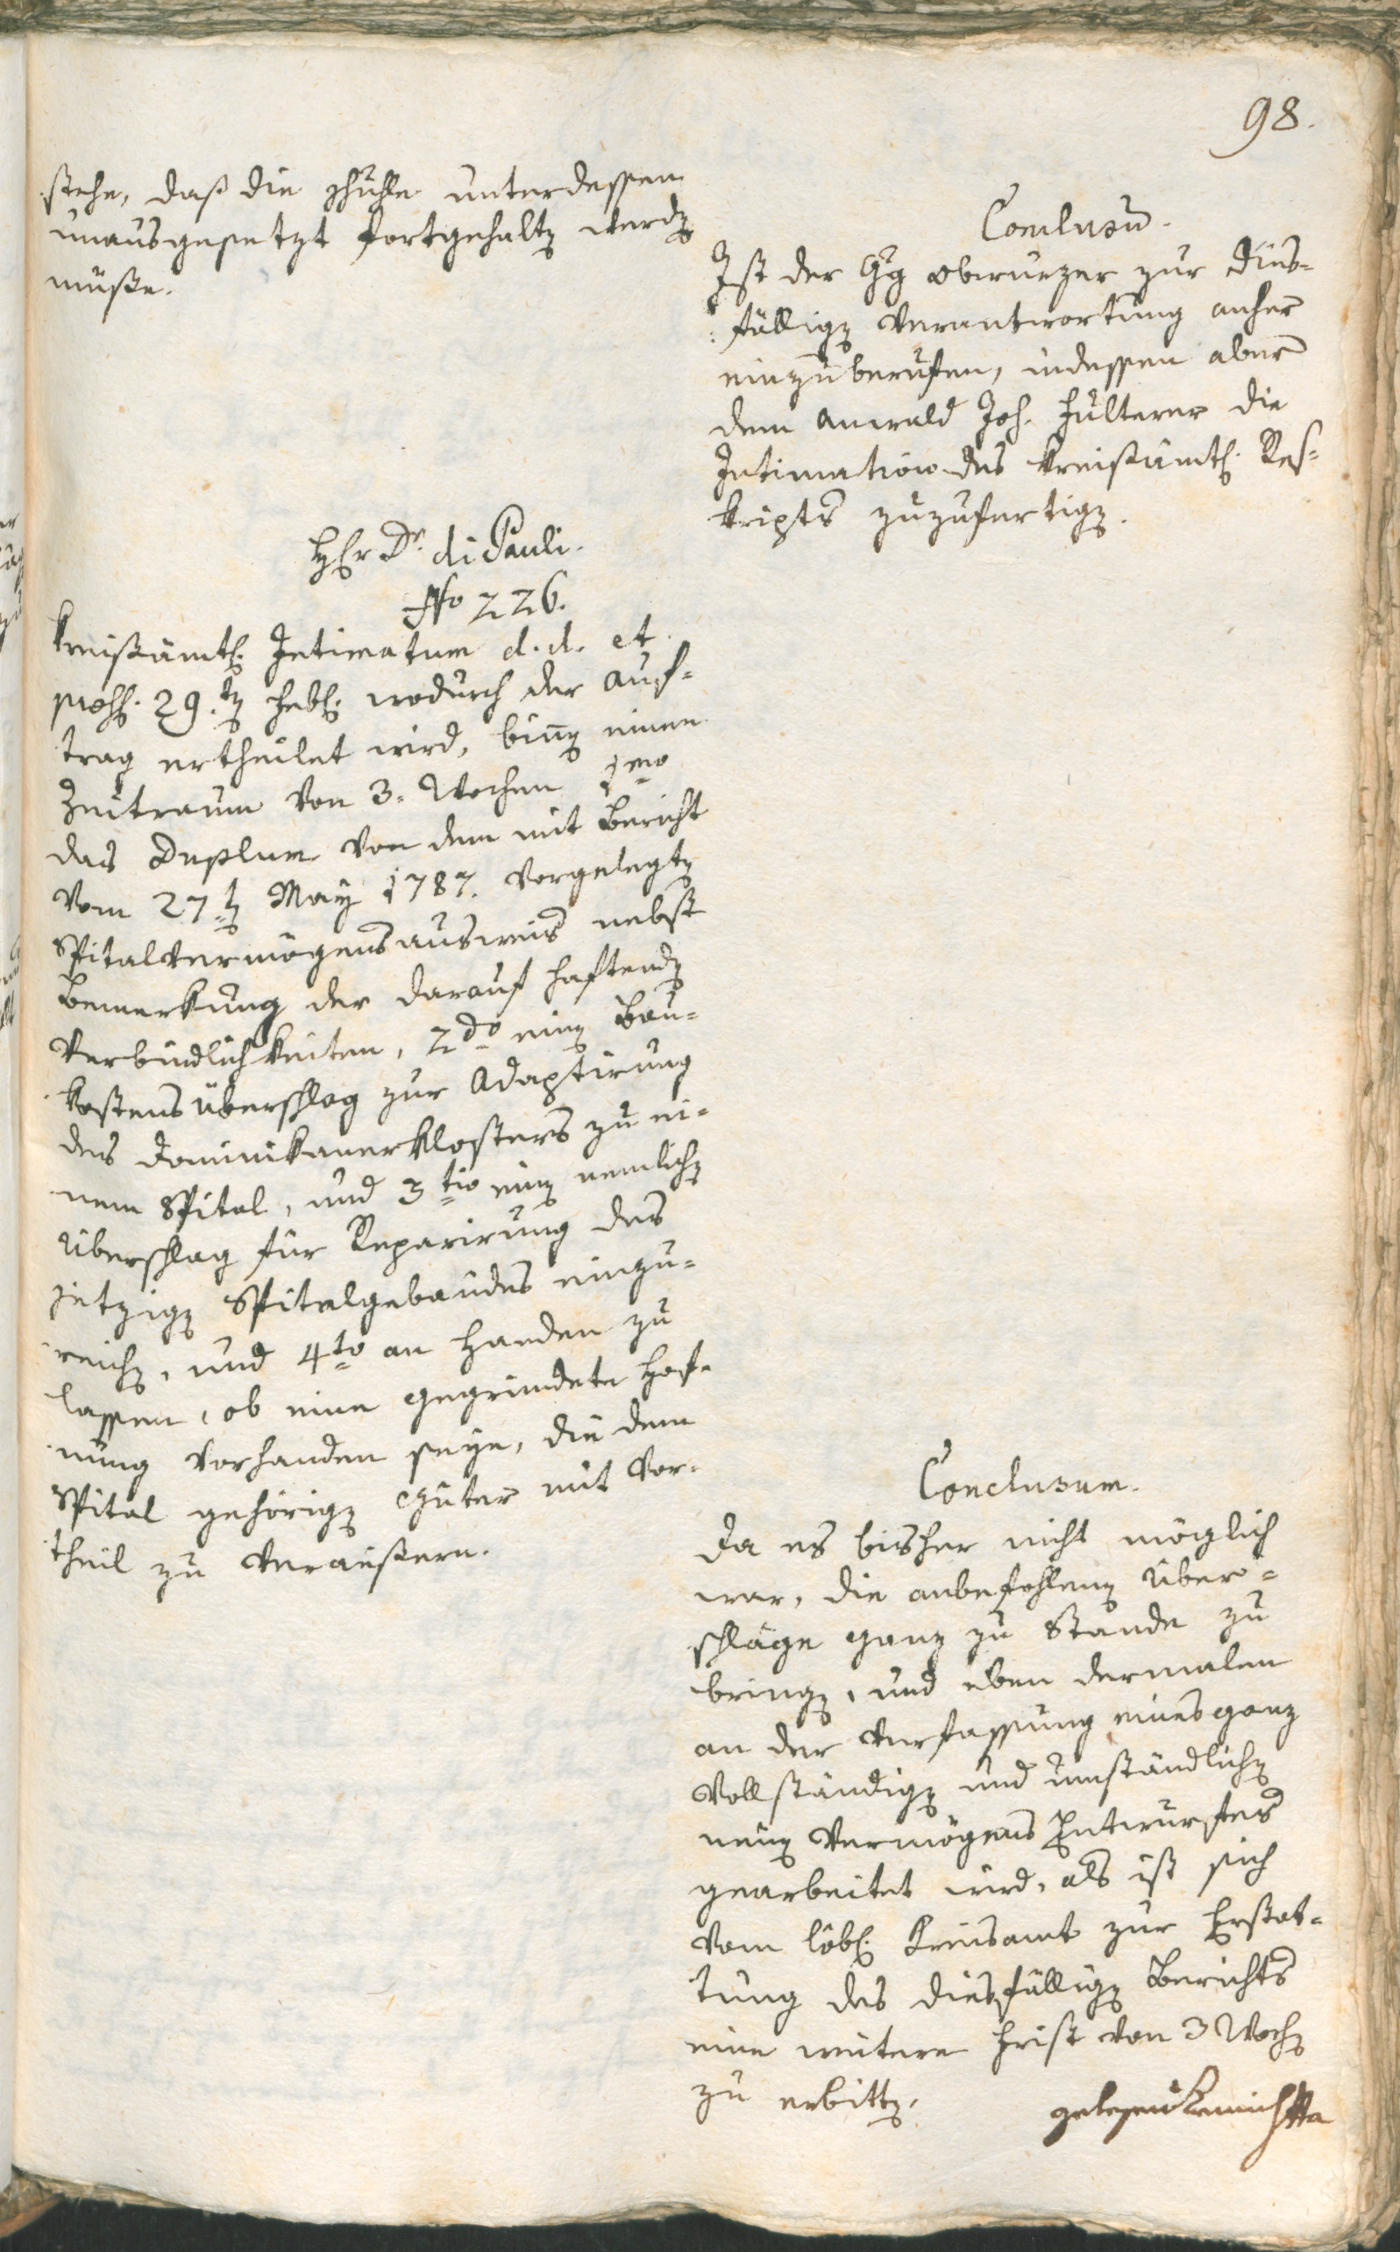 98.
stehe, daß die Schulle unterdessen
unausgesetzt fortgehalten werden
müße.
Conclusum.
Ist der Gg Oberurzer zur dies-
fälligen Verantwortung anher
einzuberufen, indessen aber
dem Anwald Joh. Hulterer die
Intimation des kreißämtl. Res-
kripts zuzufertigen.
H Er Dr. di Pauli.
No 226.
Kreißämtl. Intimatum d. d. et
präs. 29.ten Febl. wodurch der Auf-
trag ertheilet wird, binnen einen
Zeitraum von 3. Wochen 1mo
das Duplum von dem mit Bericht
vom 27ten May 1787. vorgelegten
Spitalvermögensausweis nebst
Bemerkung der darauf haftenden
Verbindlichkeiten, 2do einen Bau-
kostensüberschlag zur Adaptirung
des Dominikanerklosters zu ei-
nem Spital, und 3tio einen nemlichen
Überschlag für Reparirung des
jetzigen Spitalgebäudes einzu-
reichen, und 4to an Handen zu
lassen, ob eine gegründete Hof-
nung vorhanden seye, die dem
Spital gehörigen Güter mit Vor-
theil zu veräußern.
Conclusum.
Da es bisher nicht möglich
war, die anbefohlenen Über-
schläge ganz zu Stande zu
bringen, und eben dermalen
an der Verfassung eines ganz
vollständigen und umständlichen
neuen Vermögens Entwurfes
gearbeitet wird, als ist sich
vom löbl. Kreisamt zur Erstat-
tung des diesfälligen Berichts
eine weitere Frist von 3 Wochen
zu erbitten.
gelesen